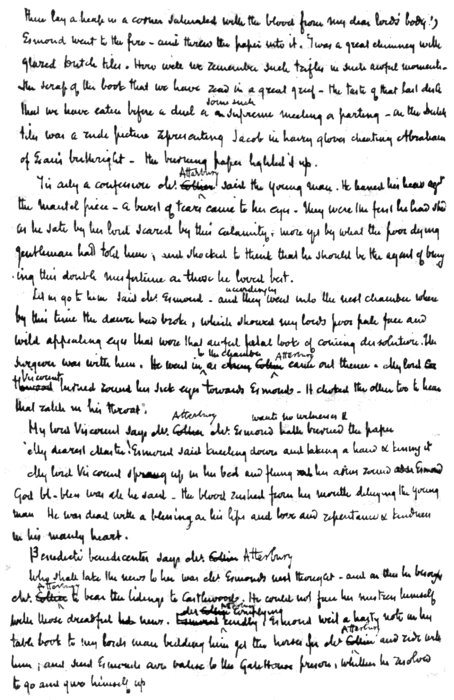 There lay a heap in a corner saturated with the blood from my dear lord's body.)
Esmond went to the fire - and threw the paper into it. 'Twas a great chimney with
glazed Dutch tiles. How well we remember such trifles in such awful moments -
the scrap of the book that we have read in a great grief - the taste of that last dish
some such
that we have eaten before a duel a supreme meeting a parting - on the Dutch
tiles was a rude picture representing Jacob in hairy gloves cheating Abraham
of Esau's birthright - the burning paper lighted it up.
Atterbury
'Tis only a confession Mr. said the young man. He leaned his head agst
the mantel piece - a burst of tears came to his eyes - They were the first he had shed
as he sate by his lord scared by this calamity: more yet by what the poor dying
gentleman had told him; and shocked to think that he should be the agent of bring
ing this double misfortune on those he loved best.
accordingly
Let us go to him said Mr. Esmond - and they went into the next chamber where
by this time the dawn had broke, which showed my lord's poor pale face and
wild appealing eyes that wore that awful fatal look of coming dissolution. The
to the chamber Atterbury
surgeon was with him. He went in as came out thence. My lord
Viscount
turned round his sick eyes towards Esmond - It choked the other too to hear
that rattle in his throat.
Atterbury wants no witnesses &
My lord Viscount says Mr. Mr. Esmond hath burned the paper
'My dearest Master' Esmond said kneeling down and taking a hand & kissing it
My lord Viscount sprang up in his bed and flung his arms round Esmond
God bl-bless was all he said - the blood rushed from his mouth deluging the young
man He was dead with a blessing on his lips and love and repentance & kindness
in his manly heart.
Benedicti benedicentes says Mr. Atterbury
Who shall take the news to her was Mr Esmonds next thought - and on this he besought
Atterbury
Mr. to bear the tidings to Castlewood. He could not face his mistress himself
with those dreadful news. Mr. complying kindly, Esmond writ a hasty note in his
Atterbury
table book to my lords man bidding him get the horses for Mr. and ride with
him; and send Esmonds own valise to the Gatehouse prison, whither he resolved
to go and give himself up